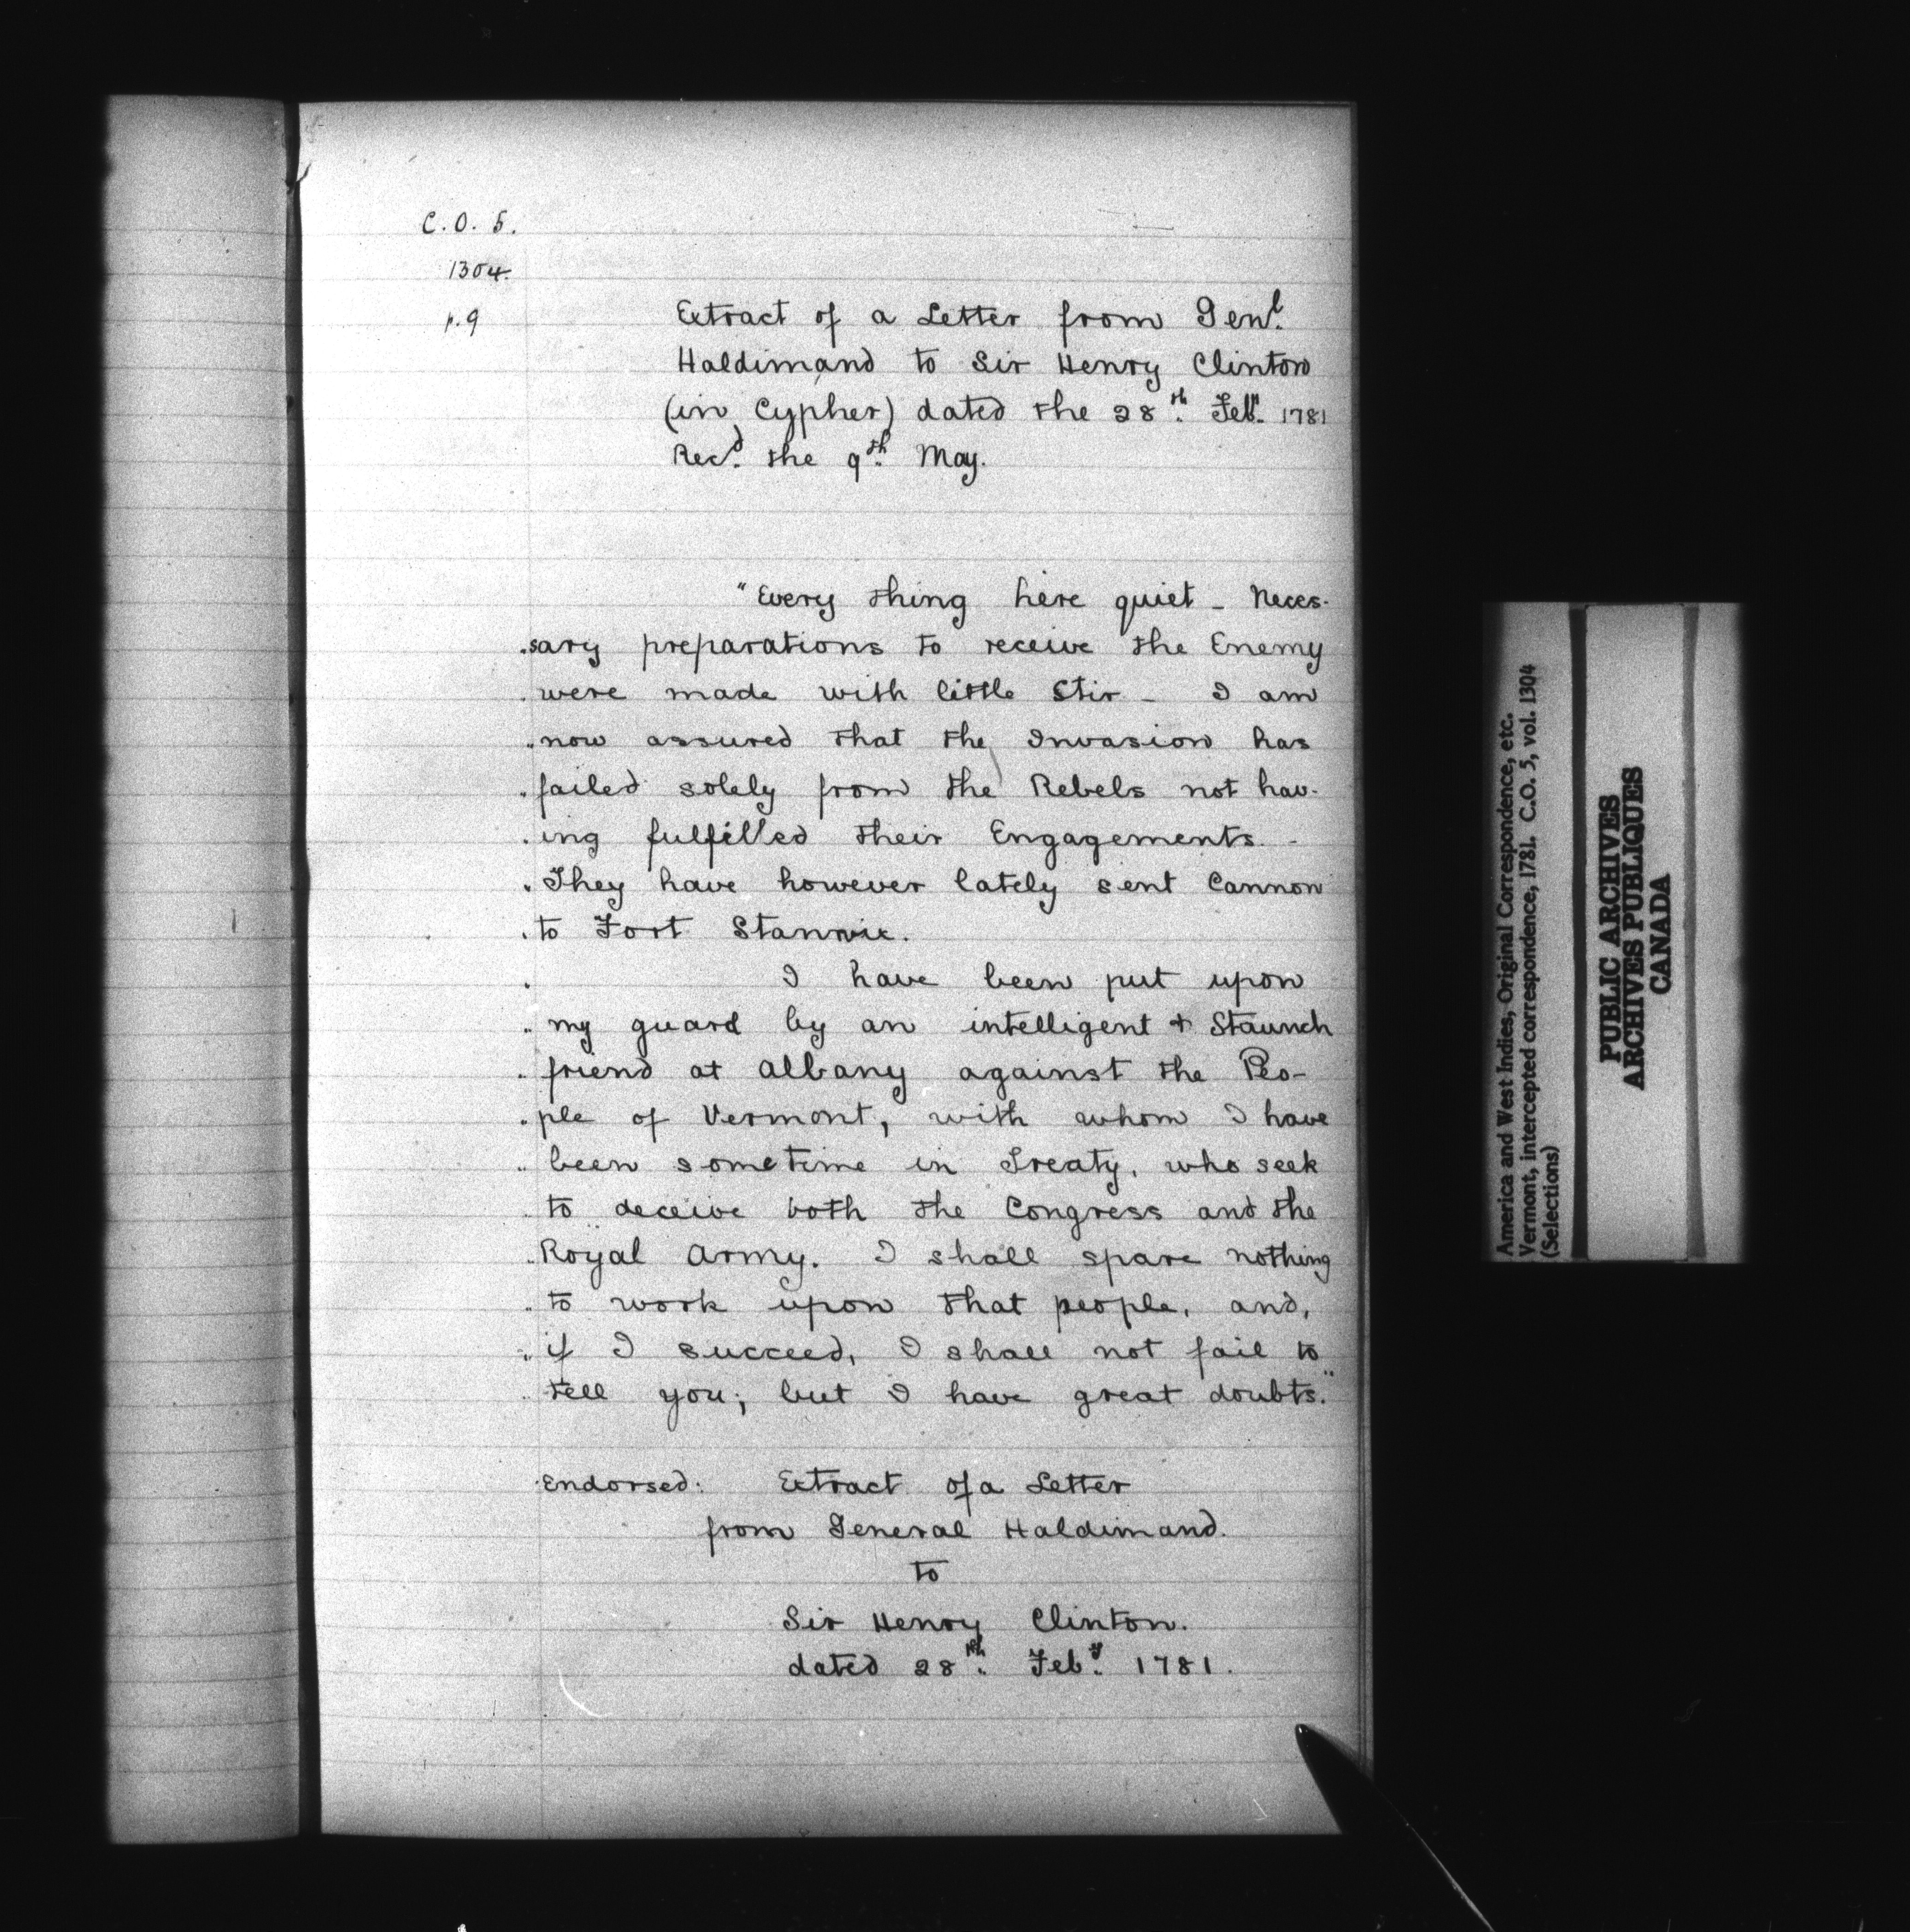 C. O. 5.
1304.
p. 9
Extract of a Letter from Genl.
Haldimand to Sir Henry Clinton
(in Cypher) dated the 28th. Feby. 1781
Recd. the 9th. May.
"Every thing here quiet - Neces-
"sary preparations to receive the Enemy
"were made with little Stir - I am
"now assured that the Invasion has
"failed solely from the Rebels not hav-
"ing fulfilled their Engagements. -
"They have however lately sent Cannon
"to Fort Stanwix.
" I have been put upon
"my guard by an intelligent & Staunch
"friend at Albany against the Peo-
"ple of Vermont, with whom I have
"been sometime in Treaty, who seek
"to deceive both the Congress and the
"Royal Army. I shall spare nothing
"to work upon that people, and,
"if I succeed, I shall not fail to
"tell you; but I have great doubts."
Endorsed: Extract of a Letter
from General Haldimand.
to
Sir Henry Clinton.
dated 28th. Feby. 1781.
America and West Indies, Original Correspondence, etc.
Vermont, intercepted correspondence, 1781. C.O. 5, vol. 1304
(Selections)
PUBLIC ARCHIVES
ARCHIVES PUBLIQUES
CANADA